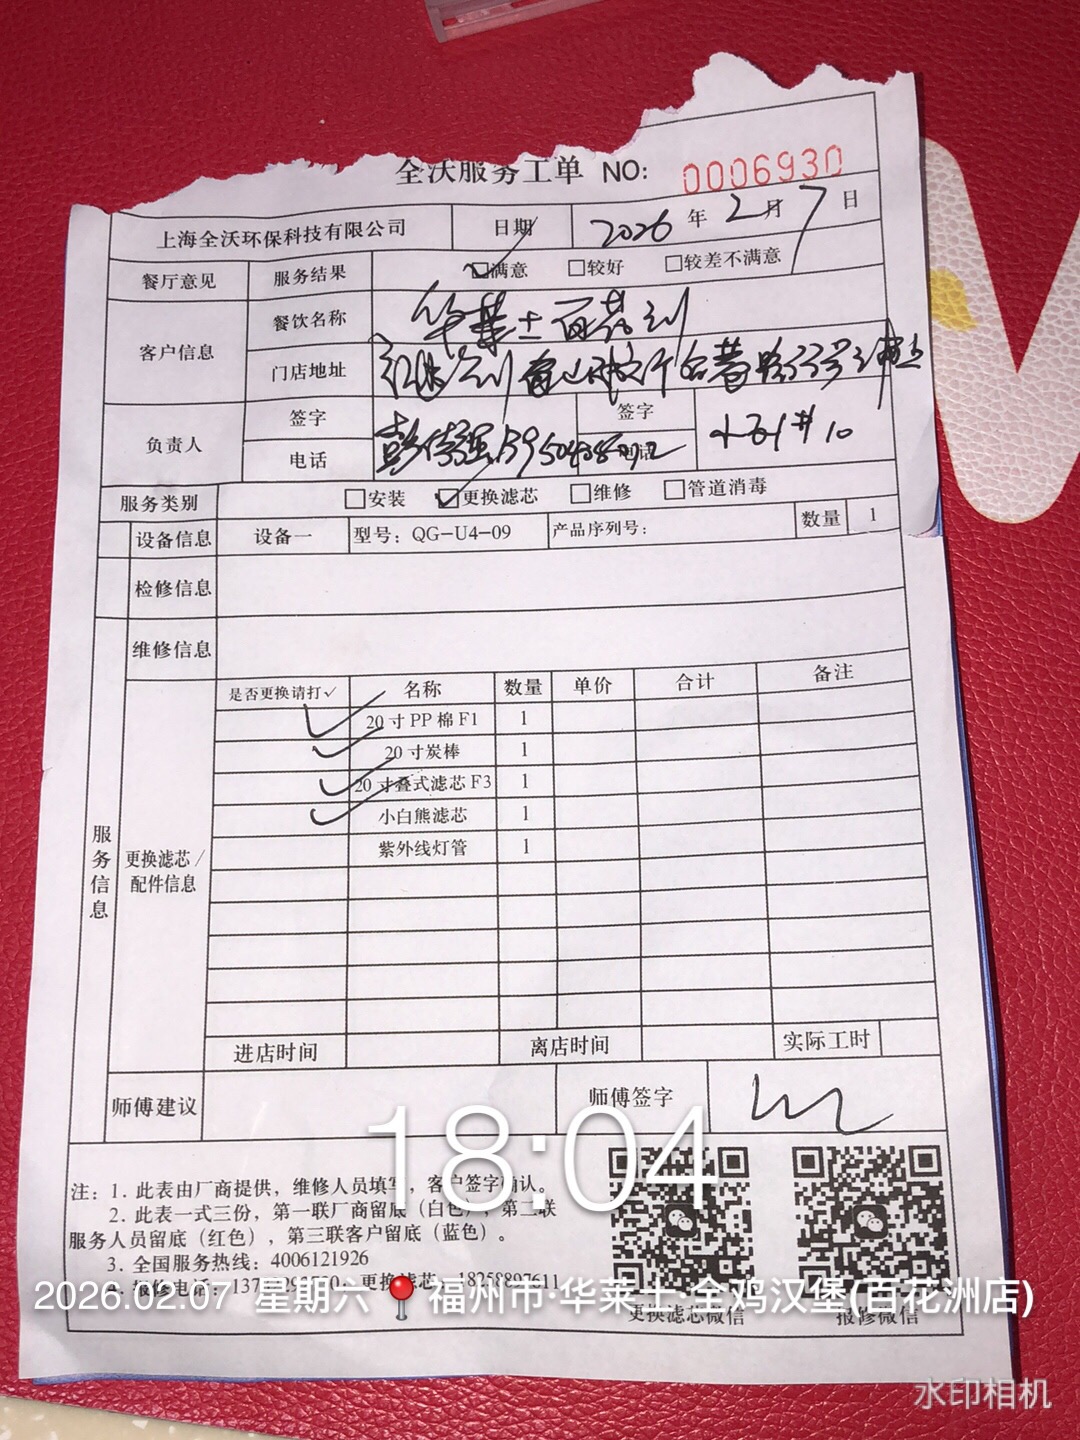 全沃服务工单 NO: 0006930
上海全沃环保科技有限公司 日期 2026年2月7日
餐厅意见 服务结果 ☑满意 □较好 □较差不满意
客户信息 餐饮名称 华莱士百花洲
门店地址
负责人 签字 签字
电话
10
服务类别 □安装 ☑更换滤芯 □维修 □管道消毒
设备信息 设备一 型号：QG-U4-09 产品序列号： 数量 1
检修信息
维修信息
是否更换请打✓ 名称 数量 单价 合计 备注
✓ 20寸PP棉F1 1
✓ 20寸炭棒 1
✓ 20寸叠式滤芯F3 1
✓ 小白熊滤芯 1
紫外线灯管 1
服务信息
更换滤芯/
配件信息
进店时间 离店时间 实际工时
师傅建议 师傅签字
18:04
注：1. 此表由厂商提供，维修人员填写，客户签字确认。
2. 此表一式三份，第一联厂商留底（白色），第二联
服务人员留底（红色），第三联客户留底（蓝色）。
3. 全国服务热线：4006121926
报修电话： 更换滤芯：
更换滤芯微信 报修微信
2026.02.07 星期六 福州市·华莱士·全鸡汉堡(百花洲店)
水印相机